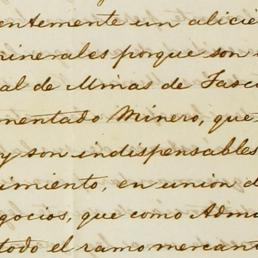 entemente un alicie
minerales porque son
al de Minas de Tasco
mentado Minero, que
y son indispensables
imiento, en union d
gocios, que como Adm
todo el ramo mercan